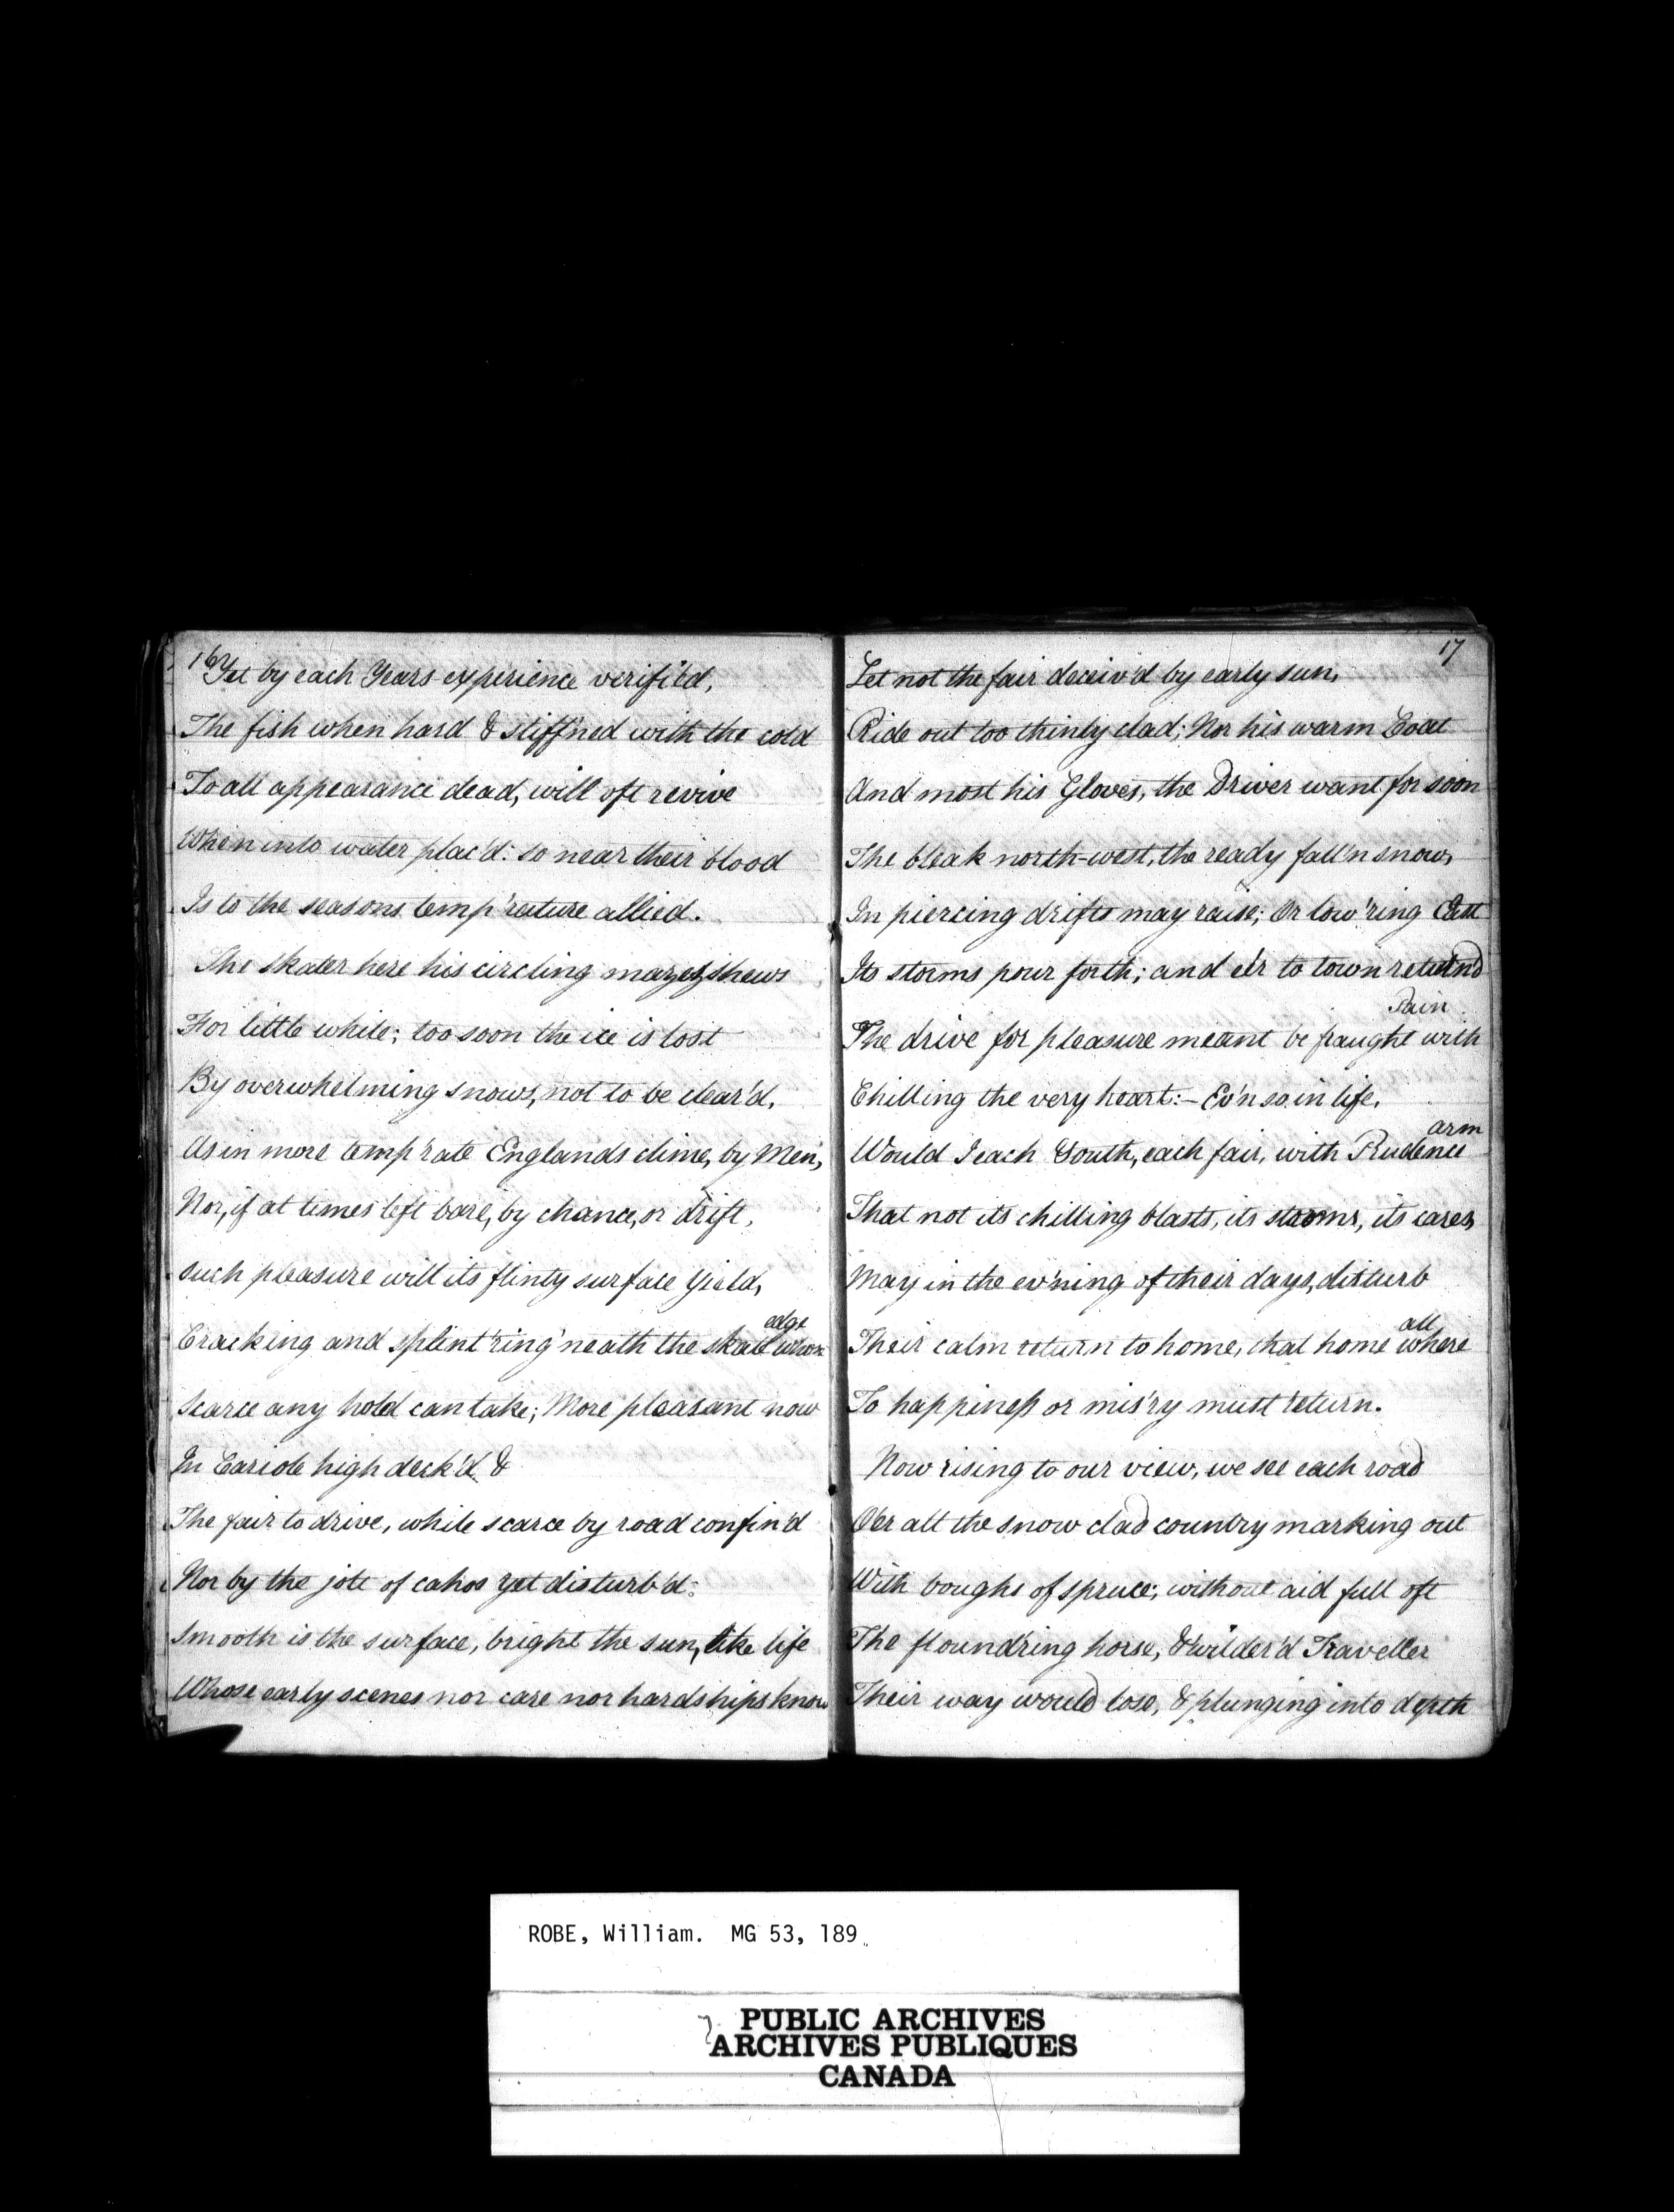 16
Yet by each Years experience verifi'd,
The fish when hard & stiff'ned with the cold
To all appearance dead, will oft revive
When into water plac'd: so near their blood
Is to the seasons temp'rature allied.
The skater here his circling mazes shews
For little while; too soon the ice is lost
By overwhelming snows, not to be clear'd,
As in more temp'rate Englands clime, by Men,
Nor, if at times left bare, by chance, or drift,
such pleasure will its flinty surface yield,
edge
Cracking and splint'ring 'neath the skait whose
Scarce any hold can take; More pleasant now
In Cariole high deck'd &
The fair to drive, while scarce by road confin'd
Nor by the jolt of cahos yet disturb'd:
Smooth is the surface, bright the sun, like life
Whose early scenes nor care nor hardships know
17
Let not the fair deceiv'd by early sun,
Ride out too thinly clad; Nor his warm Coat
And most his Gloves, the Driver want for soon
The bleak north-west, the ready fall'n snow,
In piercing drifts may raise; Or low'ring East
Its storms pour forth; and e'er to town return'd
Pain
The drive for pleasure meant be fraught with
Chilling the very heart:- Ev'n so in life,
arm
Would I each Youth, each fair, with Prudence
That not its chilling blasts, its storms, its cares
May in the ev'ning of their days, disturb
all
Their calm return to home, that home where
To happiness or mis'ry must return.
Now rising to our view, we see each road
O'er all the snow clad country marking out
With boughs of spruce; without aid full oft
The flound'ring horse, & 'wilder'd Traveller
Their way would lose, & plunging into depth
ROBE, William. MG 53, 189
PUBLIC ARCHIVES
ARCHIVES PUBLIQUES
CANADA